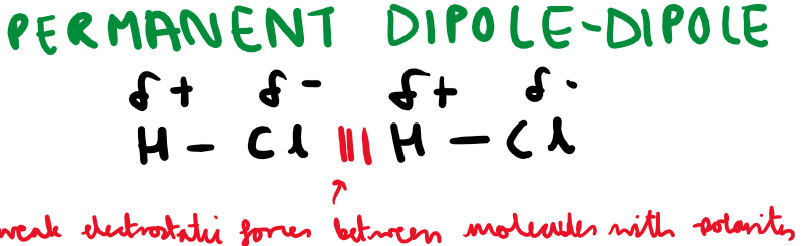 PERMANENT DIPOLE-DIPOLE
δ+ δ- δ+ δ-
H - Cl ||| H - Cl
weak electrostatic forces between molecules with polarities